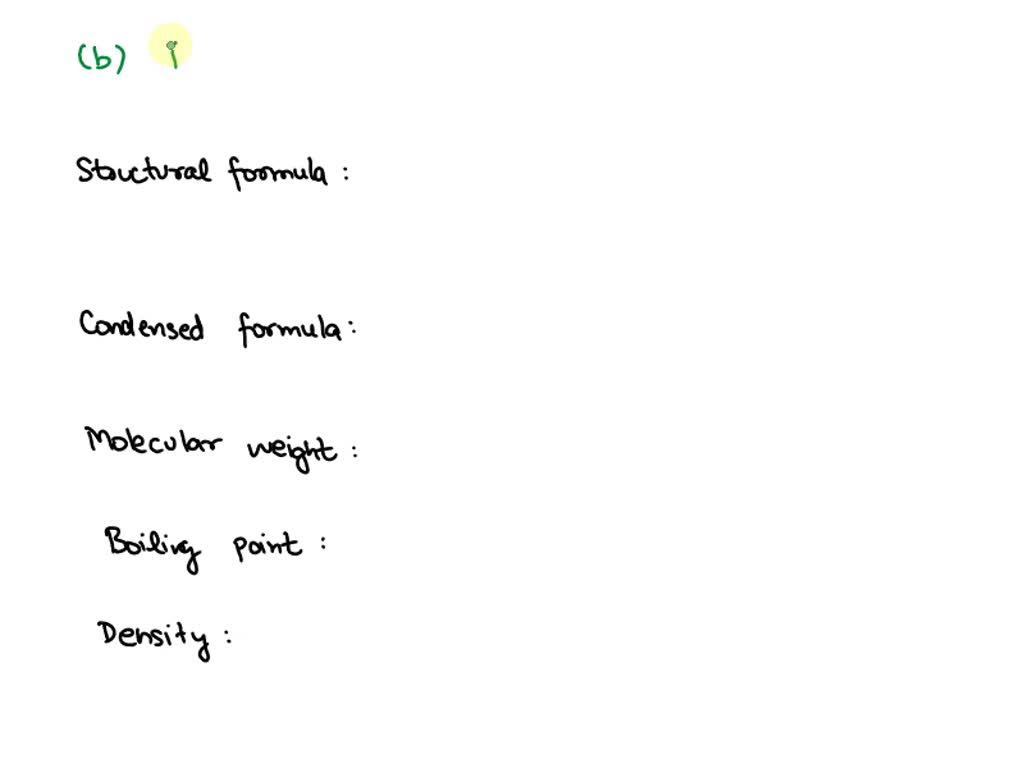 (b)
Structural formula :
Condensed formula :
Molecular weight :
Boiling point :
Density :